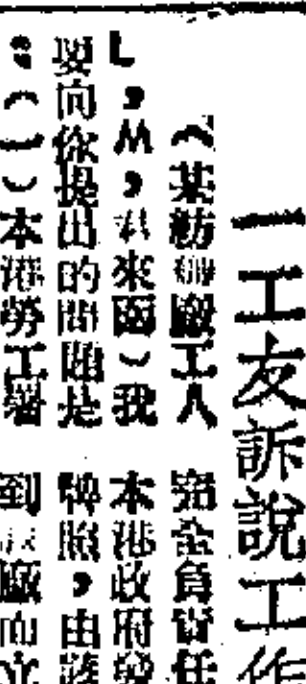 一工友訴說工作
（某紡織廠工人
L，M，君來函）我
要向你提出的問題是
：（一）本港勞工署
完全負責任
本港政府發
牌照，由
到 廠